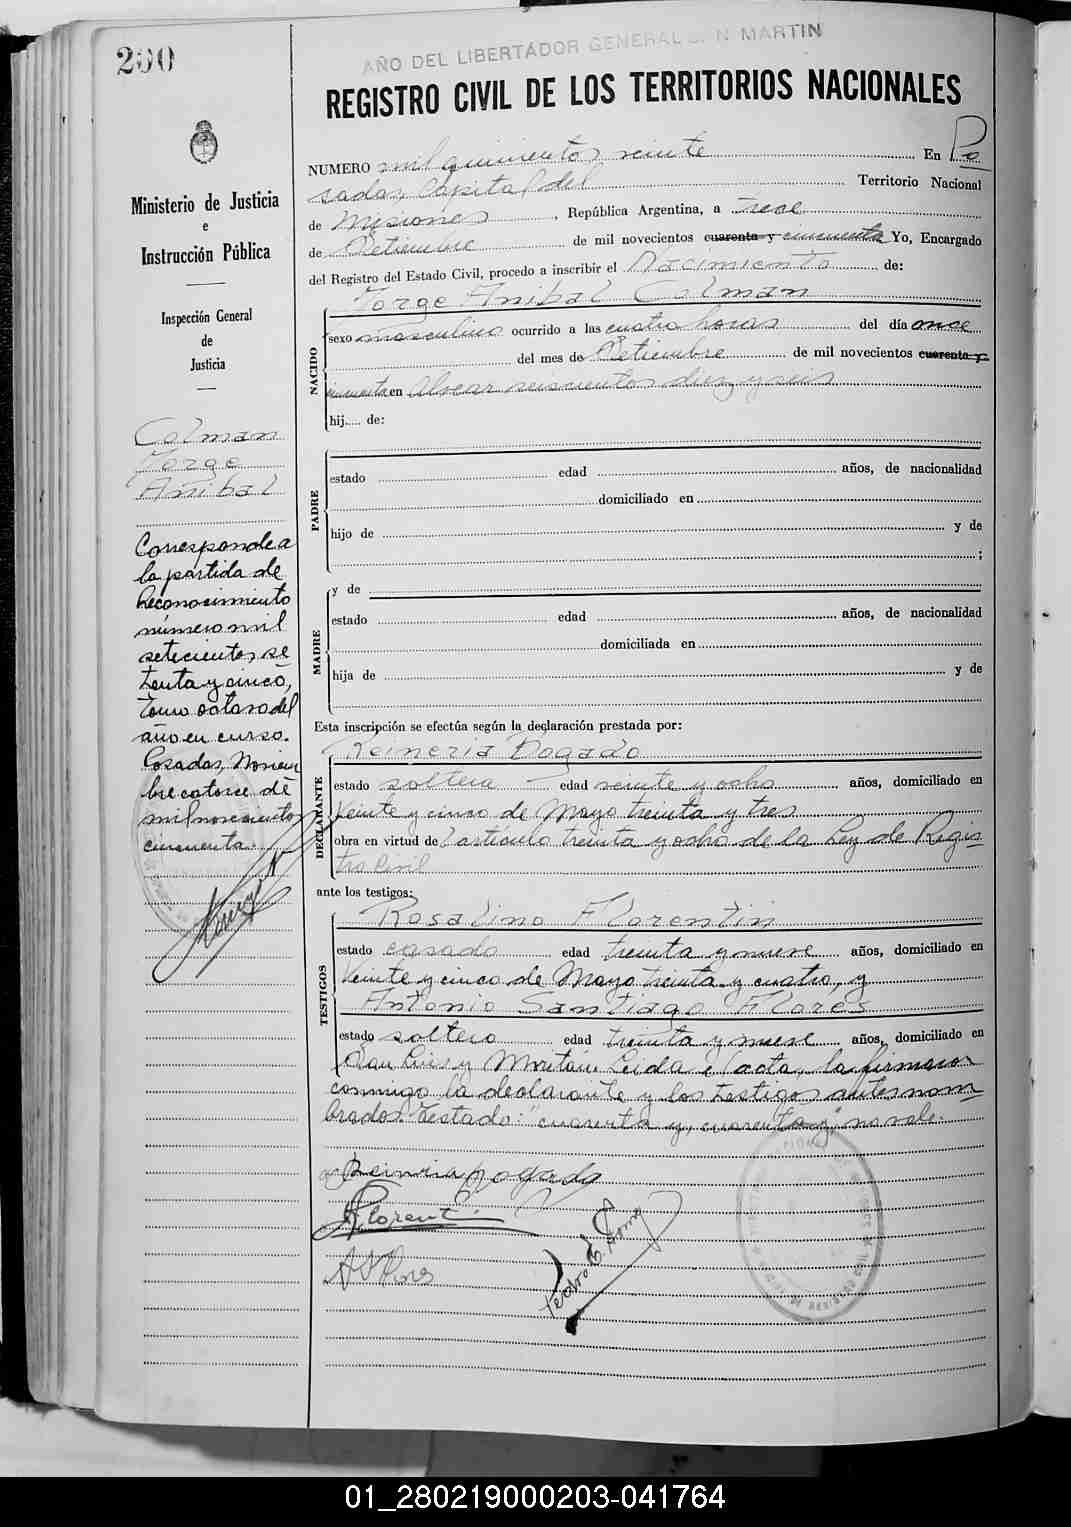 200
AÑO DEL LIBERTADOR GENERAL SAN MARTIN
REGISTRO CIVIL DE LOS TERRITORIOS NACIONALES
Ministerio de Justicia
e
Instrucción Pública
Inspección General
de
Justicia
Colman
Jorge
Anibal
Corresponde a
la partida de
Reconocimiento
número mil
setecientos se
tenta y cinco,
tomo octavo del
año en curso.
Posadas, Noviem
bre catorce de
mil novecientos
cincuenta.
NUMERO mil quinientos veinte En Po
sadas, Capital del Territorio Nacional
de Misiones, República Argentina, a trece
de Setiembre de mil novecientos cuarenta y cincuenta Yo, Encargado
del Registro del Estado Civil, procedo a inscribir el Nacimiento de:
Jorge Anibal Colman
NACIDO
sexo masculino ocurrido a las cuatro horas del día once
del mes de Setiembre de mil novecientos cuarenta y
cincuenta en Alvear seiscientos diez y seis
hij.... de:
PADRE
estado edad años, de nacionalidad
domiciliado en
hijo de y de
;
MADRE
y de
estado edad años, de nacionalidad
domiciliada en
hija de y de
Esta inscripción se efectúa según la declaración prestada por:
DECLARANTE
Reineria Bogado
estado soltera edad veinte y ocho años, domiciliado en
Veinte y cinco de Mayo treinta y tres
obra en virtud de l artículo treinta y ocho de la Ley de Regis
tro Civil
ante los testigos:
TESTIGOS
Rosalino Florentin
estado casado edad treinta y nueve años, domiciliado en
Veinte y cinco de Mayo treinta y cuatro, y
Antonio Santiago Flores
estado soltero edad treinta y nueve años, domiciliado en
San Luis y Leida el acta, la firmaron
conmigo la declarante y los testigos antes nom
brados. Testado: "cuarenta y, cuarenta y," no vale.
Reineria Bogado
Florentin
A S Flores
01_280219000203-041764